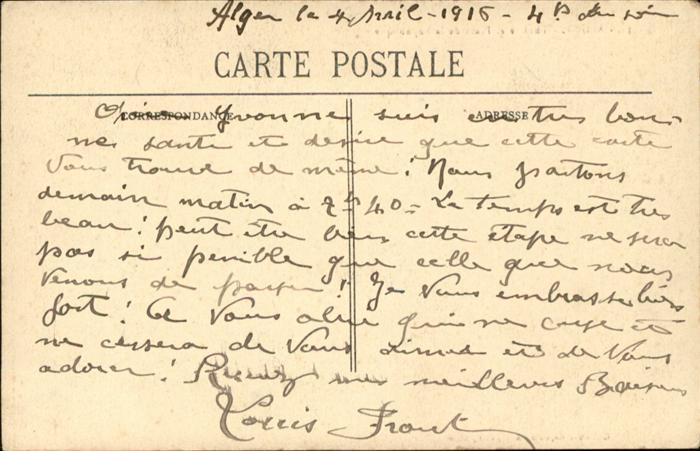 Alger le 4 Avril - 1916 - 4h du soir
CARTE POSTALE
CORRESPONDANCE ADRESSE
Yvonne suis en tres bon-
nes santé et desire que cette carte
vous trouve de même! Nous partons
demain matin à 7h 40 = Le temps est tres
beau! peut être bien cette étape ne sera
pas si penible que celle que nous
venons de passer! Je vous embrasse bien
fort! a vous qui ne cesse et
ne cessera de vous aimer et de vous
adorer! mes meilleurs Baisers
Louis